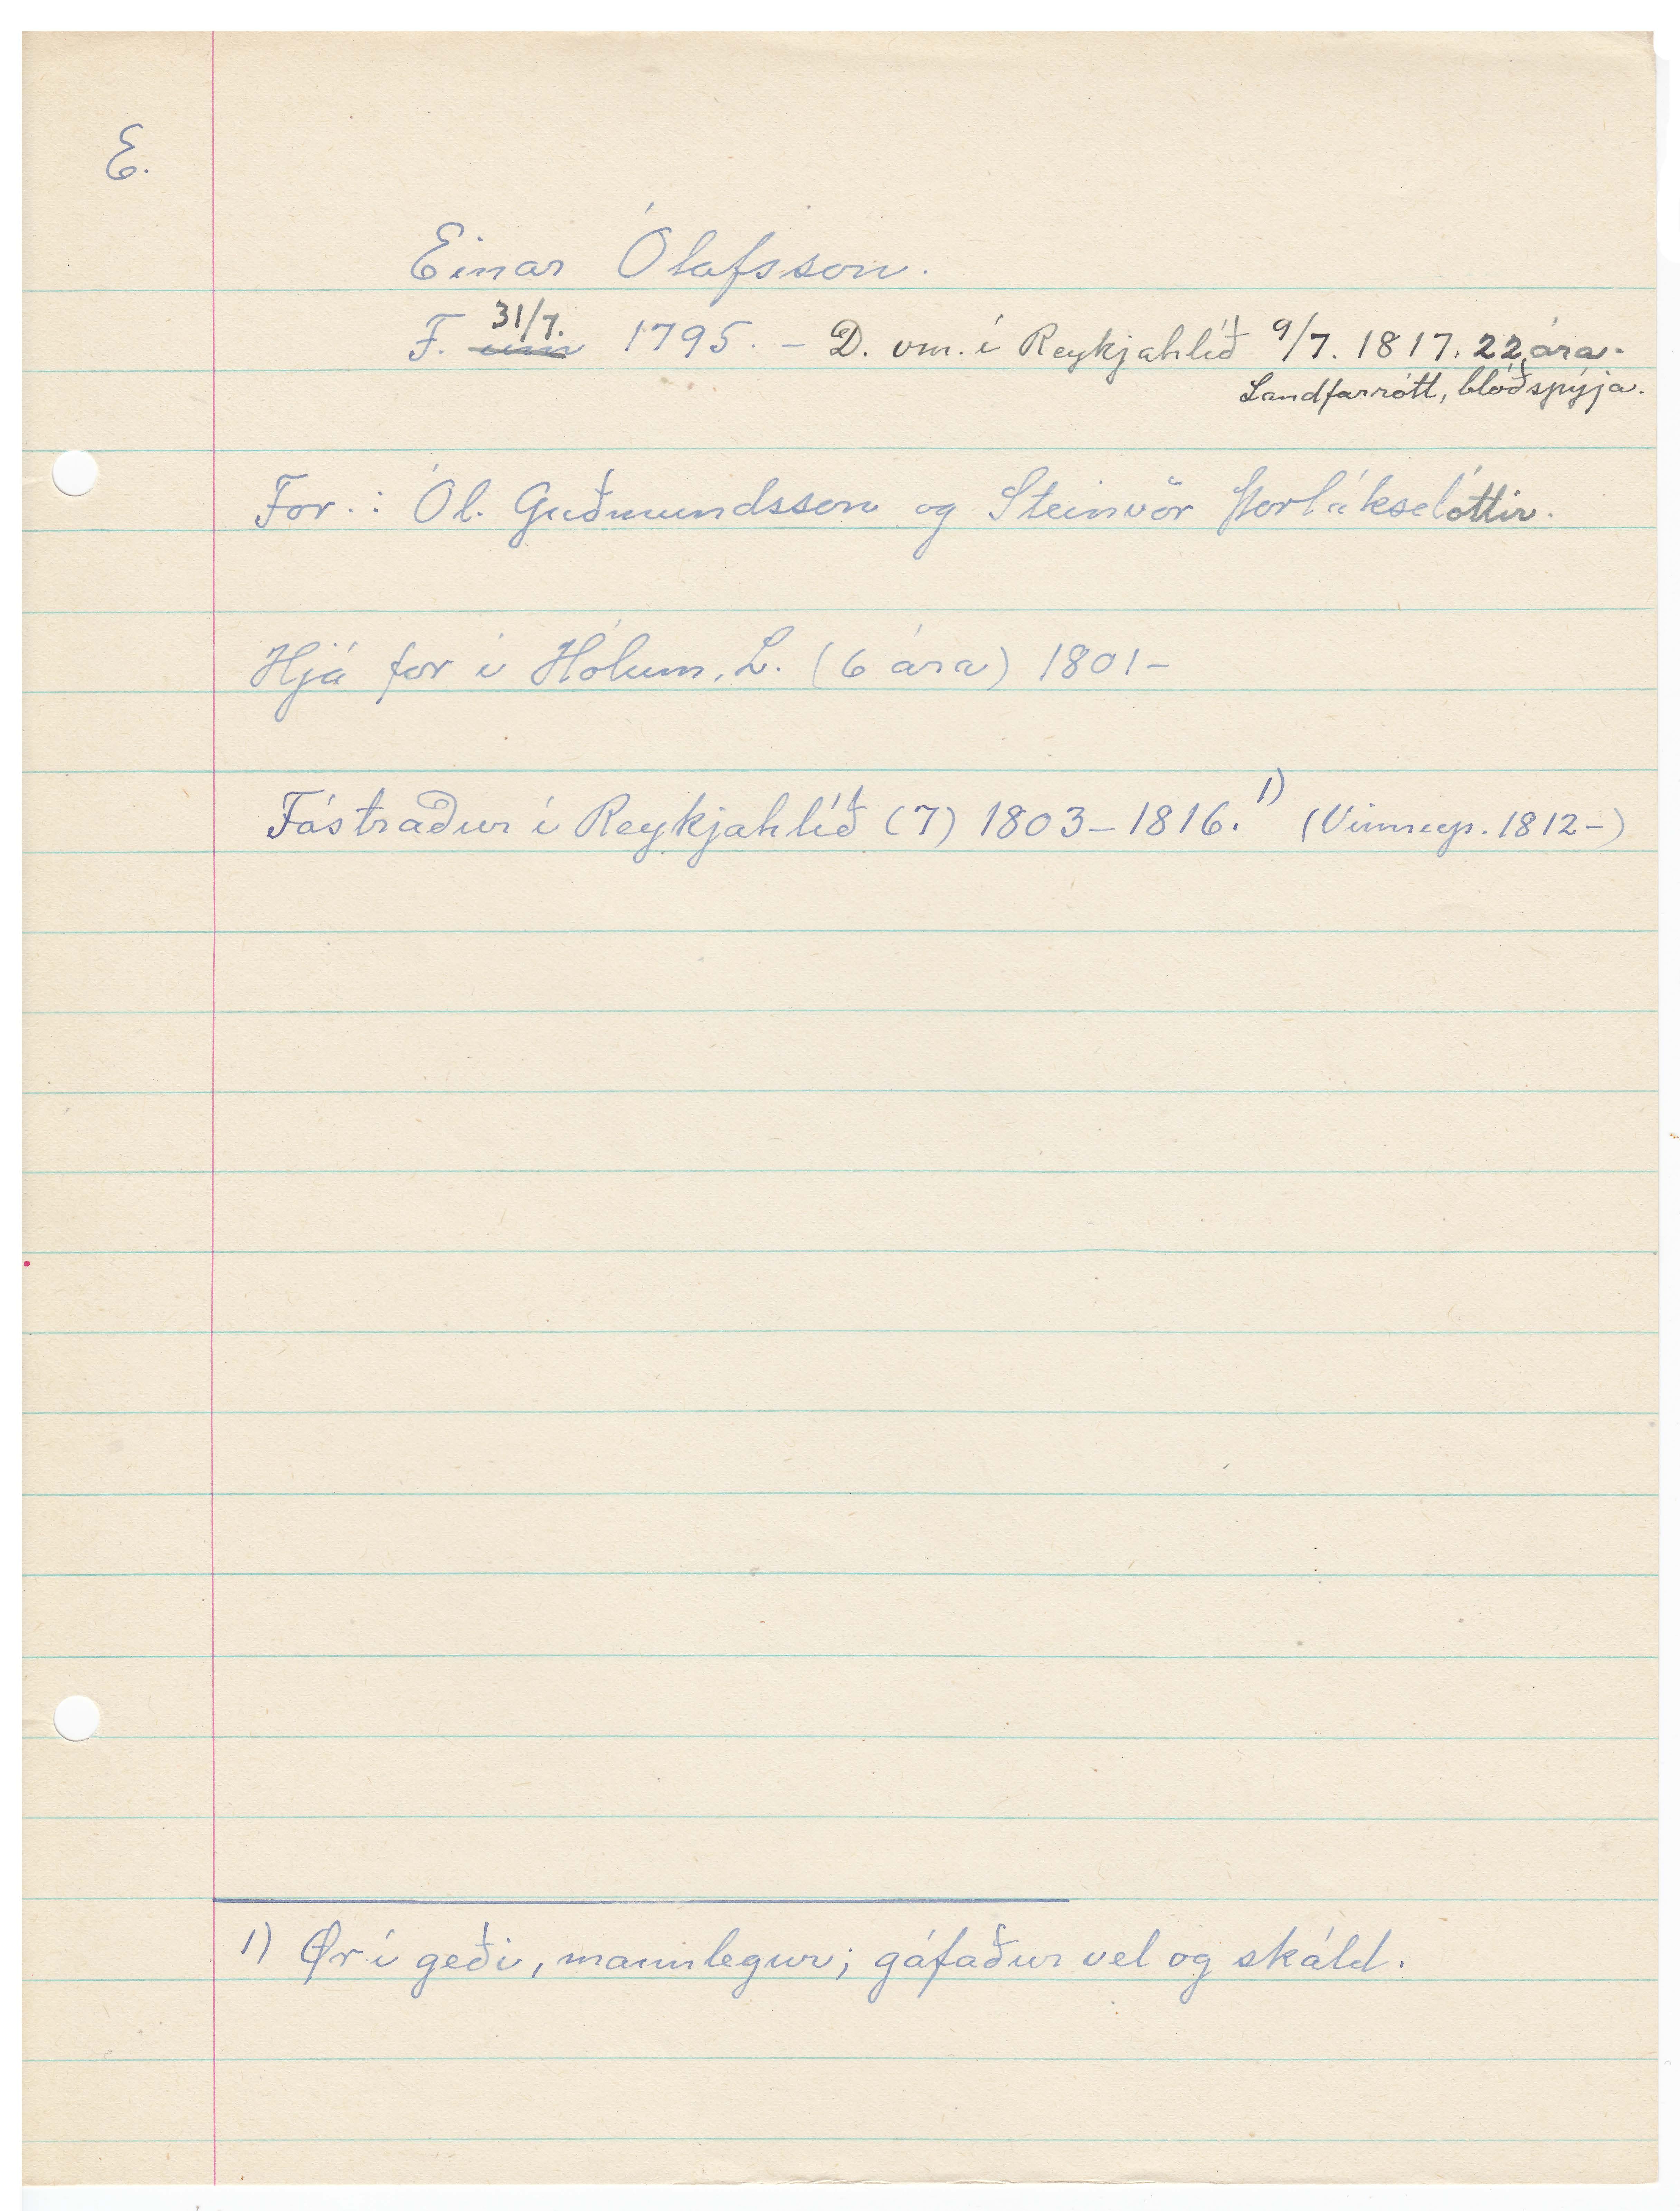 E.
Einar Ólafsson.
F. ~~um~~ 31/7. 1795. – D. vm. í Reykjahlíð 9/7. 1817. 22 ára.
Landfarrótt, blóðspýja.
For.: Ól. Guðmundsson og Steinvör Þorláksdóttir.
Hjá for í Hólum, L. (6 ára) 1801–
Fóstraður í Reykjahlíð (7) 1803–1816. 1) (Vinnup. 1812–)
1) Ör í geði, mannlegur; gáfaður vel og skáld.